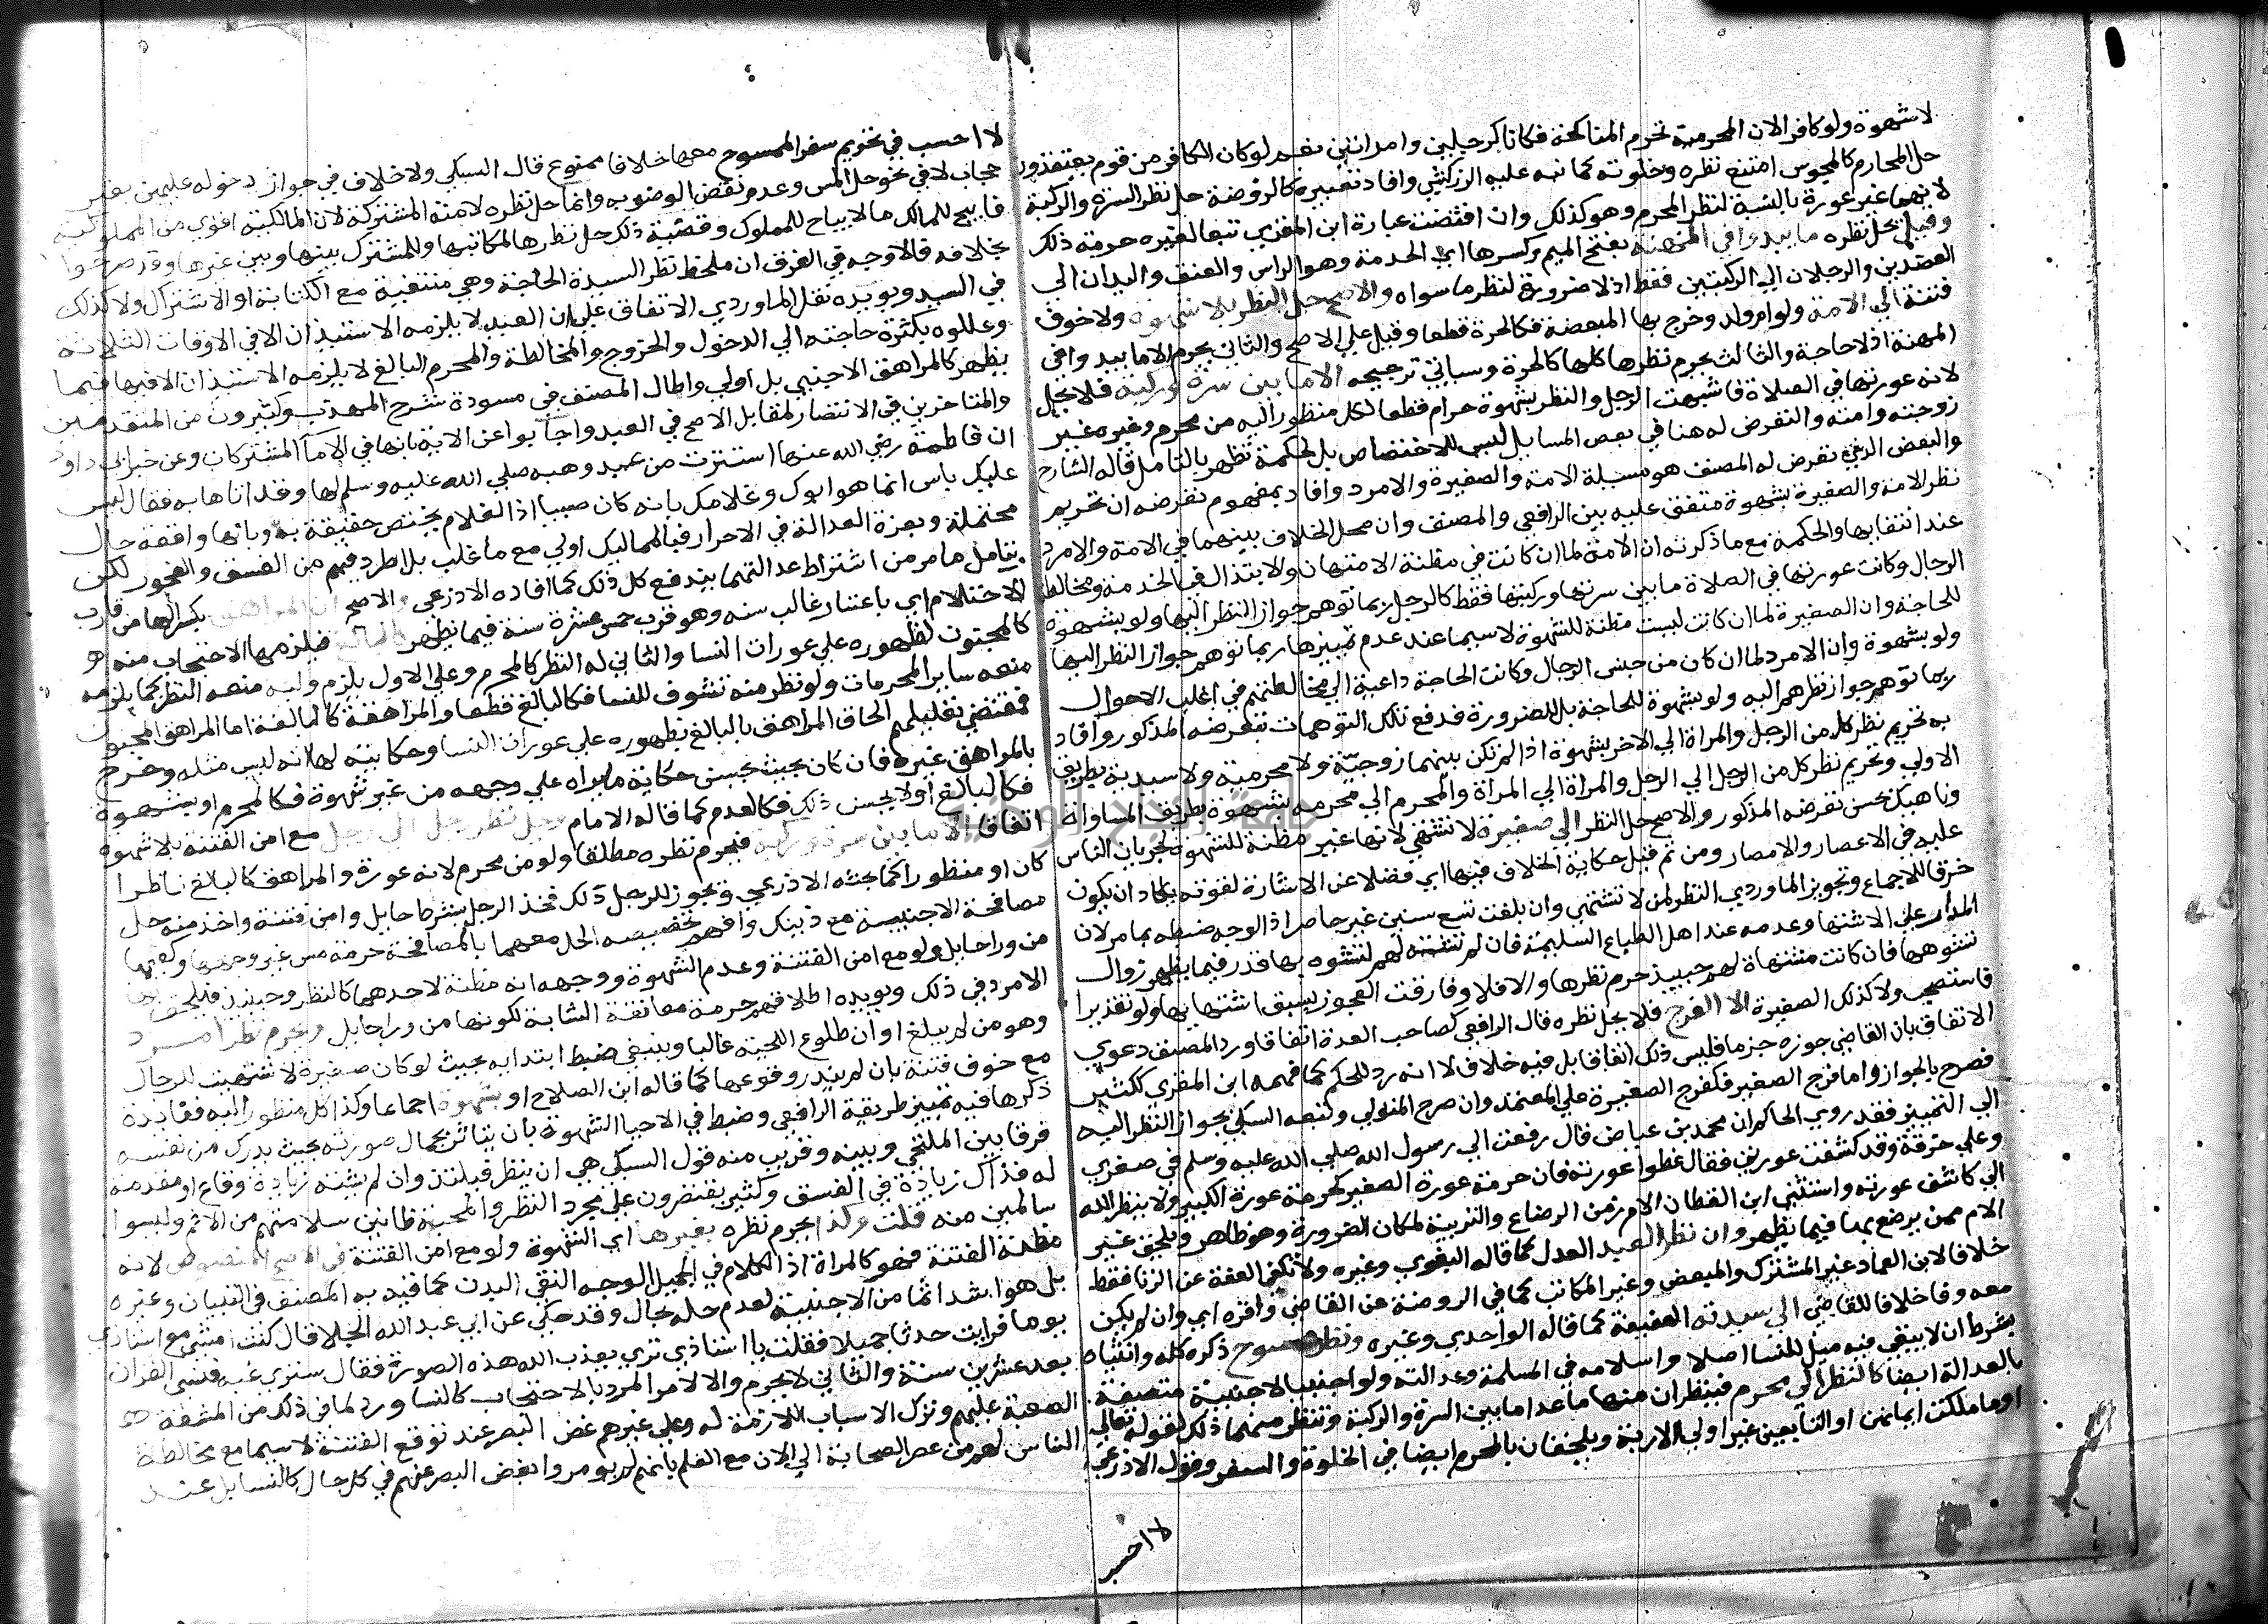 لا شهوة ولو كافرا لان المحرمية تحرم المناكحة فكانا كرجلين وامراتين نعم لو كان الكافر من قوم يعتقدون
حل المحارم كالمجوس امتنع نظره وخلوته كما نبه عليه الزركشي وافاد تعبيره كالروضة حل نظر السرة والركبة
لانهما غير عورة بالنسبة لنظر المحرم وهو كذلك وان اقتضت عبارة ابن المقري تبعا لغيره حرمة ذلك
وقيل يحل نظره ما يبدو في المهنة بفتح الميم وكسرها اي الخدمة وهو الراس والعنق واليدان الى
العضدين والرجلان الي الركبتين فقط اذ لا ضرورة لنظر ما سواه والاصح حل النظر بلا شهوة ولا خوف
فتنة الي الامة ولو ام ولد وخرج بها المبعضة فكالحرة قطعا وقيل علي الاصح والثاني يحرم الا ما يبدو في
المهنة اذ لا حاجة والثالث يحرم نظرها كلها كالحرة وسياتي ترجيحه الا ما بين سرة وركبة فلا يحل
لانه عورتها في الصلاة فاشبهت الرجل والنظر بشهوة حرام قطعا لكل منظور اليه من محرم وغيره غير
زوجته وامته والتعرض له هنا في بعض المسايل ليس للاختصاص بل لحكمة تظهر بالتامل قاله الشارح
والبعض الذي تعرض له المصنف هو مسيلة الامة والصغيرة والامرد وافاد بمفهوم تعرضه ان تحريم
نظر الامة والصغيرة بشهوة متفق عليه بين الرافعي والمصنف وان محل الخلاف بينهما في الامة والامرد
عند انتفايها والحكمة مع ما ذكرته ان الامة لما ان كانت في مظنة الامتهان والابتذال في الخدمة ومخالطة
الرجال وكانت عورتها في الصلاة ما بين سرتها وركبتها فقط كالرجل ربما توهم جواز النظر اليها ولو بشهوة
للحاجة وان الصغيرة لما ان كانت ليست مظنة للشهوة لاسيما عند عدم تمييزها ربما توهم جواز النظر اليها
ولو بشهوة وان الامرد لما ان كان من جنس الرجال وكانت الحاجة داعية الي مخالطتهم في اغلب الاحوال
ربما توهم جواز نظرهم اليه ولو بشهوة للحاجة بل للضرورة فدفع تلك التوهمات بتعرضه المذكور وافاد
به تحريم نظر كل من الرجل والمراة الي الاخر بشهوة اذا لم تكن بينهما زوجية ولا محرمية ولا سيدية بطريق
الاولي وتحريم نظر كل من الرجل الي الرجل والمراة الي المراة والمحرم الي محرمه بشهوة بطريق المساواة
وناهيك بحسن تعرضه المذكور والاصح حل النظر الي صغيرة لا تشتهي لانها غير مظنة للشهوة لجريان الناس
عليه في الاعصار والامصار ومن ثم قيل حكاية الخلاف فيها اي فضلا عن الاشارة لقوته يكاد ان يكون
خرقا للاجماع وتجويز الماوردي النظر لمن لا تشتهي وان بلغت تسع سنين غير حاصر اذ الوجه ضبطه بما مر لان
المدار علي الاشتها وعدمه عند اهل الطباع السليمة فان لم تشتهه لهم لتشوه بها قدر فيما يظهر زوال
تشوهها فان كانت مشتهاة لهم حينيذ حرم نظرها والا فلا وفارقت العجوز بسبق اشتهايها ولو تقديرا
فاستصحب ولا كذلك الصغيرة الا الفرج فلا يحل نظره قال الرافعي كصاحب العدة اتفاقا ورد المصنف دعوي
الاتفاق بان القاضي جوزه جزما فليس ذلك اتفاقا بل فيه خلاف لا انه رد للحكم كما فهمه ابن المقري ككثير
فصرح بالجواز واما فرج الصغير فكفرج الصغيرة علي المعتمد وان صرح المتولي وتبعه السبكي بجواز النظر اليه
الي التمييز فقد روي الحاكم ان محمد بن عياض قال رفعت الي رسول الله صلي الله عليه وسلم في صغري
وعلي خرقة وقد كشفت عورتي فقال غطوا عورته فان حرمة عورة الصغير كحرمة عورة الكبير ولا ينظر الله
الي كاشف عورته واستثني ابن القطان الام زمن الرضاع والتربية لمكان الضرورة وهو ظاهر ويلحق غير
الام ممن يرضع بها فيما يظهر وان نظر العبد العدل كما قاله البغوي وغيره ولا تكفي العفة عن الزنا فقط
خلافا لابن العماد غير المشترك والمبعض وغير المكاتب كما في الروضة عن القاضي واقره اي وان لم يكن
معه وفا خلافا للقاضي الي سيدته العفيفة كما قاله الواحدي وغيره ونظر ممسوح ذكره كله وانثياه
بشرط ان لا يبقي فيه ميل للنسا اصلا واسلامه في المسلمة وعدالته ولو اجنبيا لاجنبية متصفة
بالعدالة ايضا كالنظر الي محرم فينظران منها ما عدا ما بين السرة والركبة وتنظر منهما ذلك لقوله تعالي
او ما ملكت ايمانهن او التابعين غير اولي الاربة ويلحقان بالمحرم ايضا في الخلوة والسفر وقول الاذرعي
لا احسب
لا احسب في تحريم سفر الممسوح معها خلافا ممنوع قال السبكي ولا خلاف في جواز دخوله عليهن بغير
حجاب لا في نحو حل المس وعدم نقض الوضو به وانما حل نظره لامته المشتركة لان المالكية اقوي من المملوكية
فابيح للمالك ما لا يباح للمملوك وقضية ذلك حل نظرها لمكاتبها وللمشترك بينها وبين غيرها وقد صرحوا
بخلافه فالاوجه في الفرق ان ملحظ نظر السيدة الحاجة وهي منتفية مع الكتابة او الاشتراك ولا كذلك
في السيد ويويده نقل الماوردي الاتفاق علي ان العبد لا يلزمه الاستيذان الا في الاوقات الثلاثة
وعللوه بكثرة حاجته الي الدخول والخروج والمخالطة والمحرم البالغ لا يلزمه الاستيذان الا فيها فيما
يظهر كالمراهق الاجنبي بل اولي واطال المصنف في مسودة شرح المهذب وكثيرون من المتقدمين
والمتاخرين في الانتصار لمقابل الاصح في العبد واجابوا عن الاية بانها في الاما المشتركات وعن خبر ابي داود
ان فاطمة رضي الله عنها استترت من عبد وهبه صلي الله عليه وسلم لها وقد اتاها به فقال ليس
عليك باس انما هو ابوك وغلامك بانه كان صبيا اذ الغلام يختص حقيقة به وبانها واقعة حال
محتملة وبعزة العدالة في الاحرار فبالمماليك اولي مع ما غلب بل اطرد فيهم من الفسق والفجور لكن
بتامل ما مر من اشتراط عدالتهما يندفع كل ذلك كما افاده الاذرعي والاصح ان المراهق بكسر الها من قارب
الاحتلام اي باعتبار غالب سنه وهو قرب خمس عشرة سنة فيما يظهر كالبالغ فيلزمها الاحتجاب منه هو
كالمجنون لظهوره علي عورات النسا والثاني له النظر كالمحرم وعلي الاول يلزم وليه منعه النظر كما يلزمه
منعه ساير المحرمات ولو نظر منه تشوف للنسا فكالبالغ قطعا والمراهقة كالبالغة اما المراهق المجنون
فمقتضي تعليلهم الحاق المراهق بالبالغ بظهوره علي عورات النسا وحكايته لها انه ليس مثله وخرج
بالمراهق غيره فان كان بحيث يحسن حكاية ما يراه علي وجهه من غير شهوة فكالمحرم او بشهوة
فكالبالغ او لا يحسن ذلك فكالعدم كما قاله الامام ويحل نظر رجل الي رجل مع امن الفتنة بلا شهوة
اتفاقا الا ما بين سرة وركبة فيحرم نظره مطلقا ولو من محرم لانه عورة والمراهق كالبالغ ناظرا
كان او منظورا كما بحثه الاذرعي ويجوز للرجل دلك فخذ الرجل بشرط حايل وامن فتنة واخذ منه حل
مصافحة الاجنبية مع ذينك وافهم تخصيصه الحل معهما بالمصافحة حرمة مس غير وجهها وكفيها
من ورا حايل ولو مع امن الفتنة وعدم الشهوة ووجهه انه مظنة لاحدهما كالنظر وحينيذ فيلحق بها
الامرد في ذلك ويويده اطلاقهم حرمة معانقة الشابة لكونها من ورا حايل ويحرم نظر امرد
وهو من لم يبلغ اوان طلوع اللحية غالبا وينبغي ضبط ابتدايه بحيث لو كان صغيرة لاشتهيت للرجال
مع خوف فتنة بان لم يندر وقوعها كما قاله ابن الصلاح او بشهوة اجماعا وكذا كل منظور اليه ففايدة
ذكرها فيه تمييز طريقة الرافعي وضبط في الاحيا الشهوة بان يتاثر بجمال صورته بحيث يدرك من نفسه
فرقا بين الملتحي وبينه وقريب منه قول السبكي هي ان ينظر فيلتذ وان لم يشته زيادة وقاع او مقدمة
له فذاك زيادة في الفسق وكثير يقتصرون علي مجرد النظر والمحبة ظانين سلامتهم من الاثم وليسوا
سالمين منه قلت وكذا يحرم نظره بغيرها اي الشهوة ولو مع امن الفتنة في الاصح المنصوص لانه
مظنة الفتنة فهو كالمراة اذ الكلام في الجميل الوجه النقي البدن كما قيده به المصنف في التبيان وغيره
بل هو اشد اثما من الاجنبية لعدم حله بحال وقد حكي عن ابي عبد الله الجلا قال كنت امشي مع استاذي
يوما فرايت حدثا جميلا فقلت يا استاذي تري يعذب الله هذه الصورة فقال ستري غبه فنسي القران
بعد عشرين سنة والثاني لا يحرم والا لامر المرد بالاحتجاب كالنسا ورد لما في ذلك من المشقة
الصعبة عليهم وترك الاسباب اللازمة له وعلي غيرهم غض البصر عند توقع الفتنة لا سيما مع مخالطة
الناس لهم من عصر الصحابة الي الان مع العلم بانهم لم يومروا بغض البصر عنهم في كل حال كالنسا بل عند